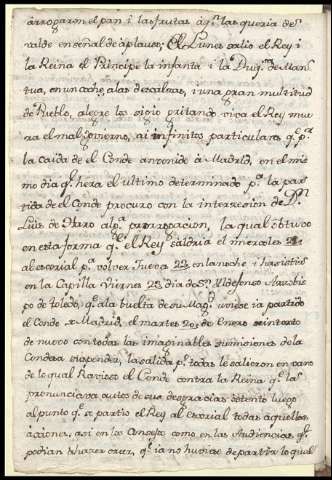 arrojaron el pan i las frutas á qn. las queria de
valde en señal de aplauso; El Lunes salio el Rey i
la Reina el Principe la infanta i la Duqsa. de Man
tua, en un coche, a las descalsas, i una gran multitud
de Pueblo, alegre los sigio gritando viva el Rey, mue
ra el mal govierno, ai infinitos particulares qe. pr.
la caida de el Conde an venido á Madrid, en el mis
mo dia qe. hera el ultimo determinado pa. la par
tida de el Conde procuro con la intersesion de Dn.
Luis de Haro alga. prorrogacion, la qual obtuvo
en esta forma qe. el Rey saldria el miercoles 21
al escorial pa. volver Jueves 22 en la noche i hasistir
en la Capilla Viernes 23 dia de Sn. Ildefonso Arzobis
po de toledo, qe. a la buelta de su Magd. uviese ia partido
el Conde de Madrid, el martes 20, de Enero se intento
de nuevo con todas las imaginables sumisiones de la
Condesa suspender, la salida pr. todas le salieron en vano
de lo qual Ravioso el Conde contra la Reina qe. las
pronunciava autora de sus desgracias obtento luego
al punto qe. se partio el Rey al Escorial todas aquellas
acciones, asi en los Consejos como en las Audiencias qe.
podian hacer creer, qe. ia no huviese de partir lo qual